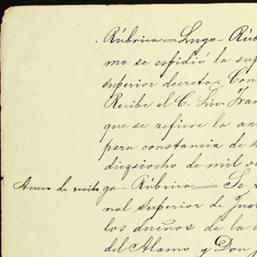 Rúbrica — Lugo — Rúb
mo se espidió la sup
superior decreto: Con
Recibe el C. Lic. Fran
que se refiere la an
para constancia de h
diezciocho de mil o
Acuse de recibo ga — Rúbrica — Se r
nal Superior de Jus
los dueños de la
del Alamo y Don